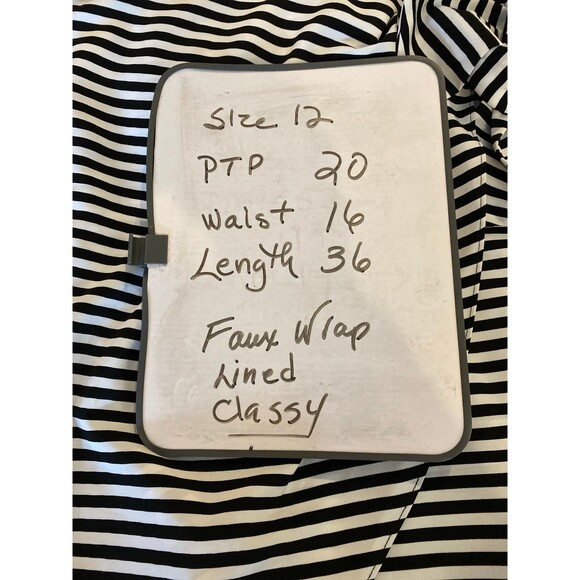 Size 12
PTP 20
Waist 16
Length 36
Faux Wrap
Lined
Classy